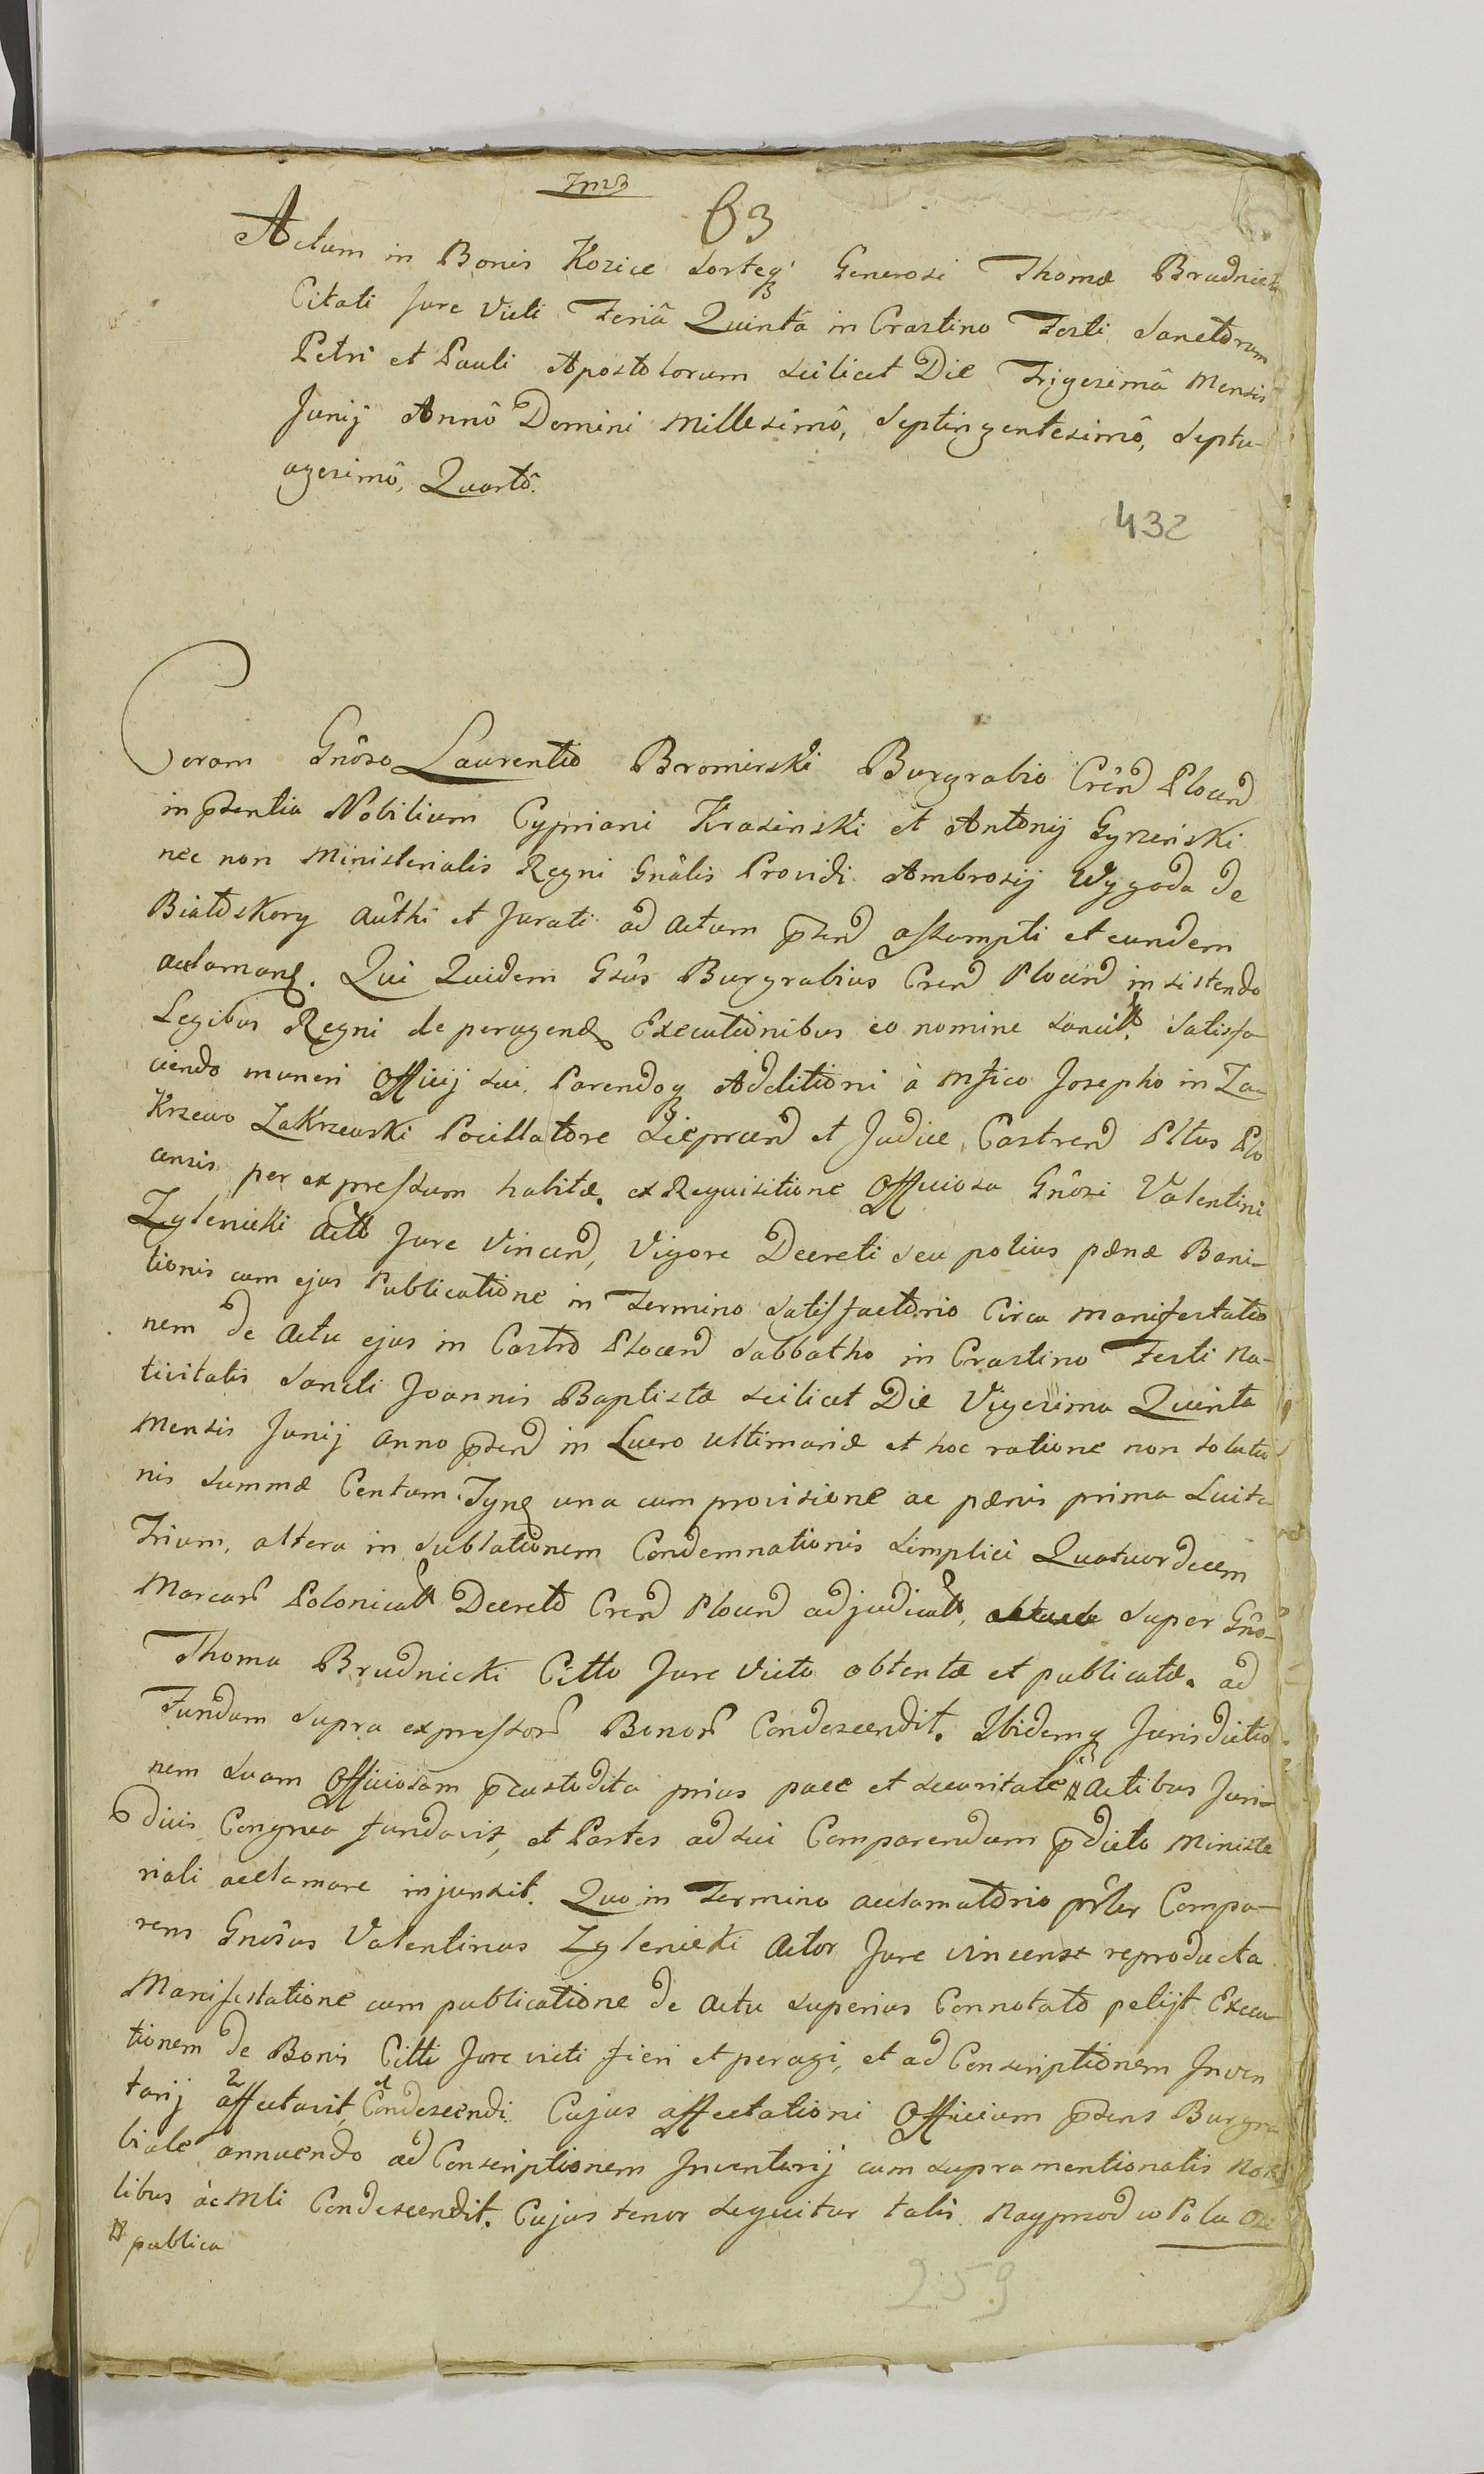 63
Actum in Bonis Kozice Sorteqꝫ Generosi Thomæ Brudnicki
Citati Jure Victi Feriâ Quintâ in Crastino Festi Sanctorum
Petri et Pauli Apostolorum scilicet Die Trigesimâ Mensis
Junij Annô Domini Millesimô, Septingentesimô, Septu-
agesimô, Quartô.
432
Coram Gnôso Laurentio Bromirski Burgrabio Crên Plocen
in pſentia Nobilium Cypriani Krasinski et Antonij Gyzinski
nec non Ministerialis Regni Gnâlis Providi Ambrosij Wygoda de
Białoskory Aûthi et Jurati ad Actum pſen assumpti et eundem
acclaman. Qui Quidem Gsûs Burgrabius Cren Plocen insistendo
Legibus Regni de peragen Executionibus eo nomine sancitt. Satisfa-
ciendo muneri Officij sui, Parendoqꝫ Additioni à Mfico Josepho in Za-
Krzewo Zakrzewski Pocillatore Sieprcen et Judice, Castren Pltus Plo
censis per expressum habitæ, ex Requisitione Officiosa Gnôsi Valentini
Zglenicki Actt Jure Vincen, Vigore Decreti seu potius pænæ Bani-
tionis cum ejus Publicatione in Termino Satisfactorio Circa Manifestatio
nem de Actu ejus in Castro Plocen Sabbatho in Crastino Festi Na-
tivitatis Sancti Joannis Baptistæ scilicet Die Vigesima Quinta
Mensis Junij Anno pſen in Lucro ultimariæ et hoc ratione non solutio
nis Summæ Centum Tyn una cum provisione ac pænis prima Luita
Trium, altera in sublationem Condemnationis simplici Quatuordecem
Marcar Polonicatt Decreto Cren Plocen adjudicatt, super Gnô-
Thoma Brudnicki Citto Jure Victo obtentæ et publicatæ, ad
Fundum supra expressor Bonor Condescendit. Ibidemqꝫ Jurisdictio
nem suam Officiosam pcustodita prius pace et securitate # Actibus Juri-
dicis Congrua fundavit, et Partes ad sui Comparendum pdicto Ministe
riali acclamare injunxit. Quo in Termino acclamatorio pŕtter Compa-
rens Gnôsus Valentinus Zglenicki Actor Jure vincens reproducta
Manifestatione cum publicatione de Actu superius Connotato petijt Execu-
tionem de Bonis Citti Jure victi fieri et peragi, et ad Conscriptionem Inven
tarij affectavit, et Condescendi. Cujus affectationi Officium pſens Burgra
biale annuendo ad Conscriptionem Inventarij cum supramentionatis Nobi
libus àc Mli Condescendit. Cujus tenor sequitur talis. Nayprzod w Polu Ozi
# publica
259